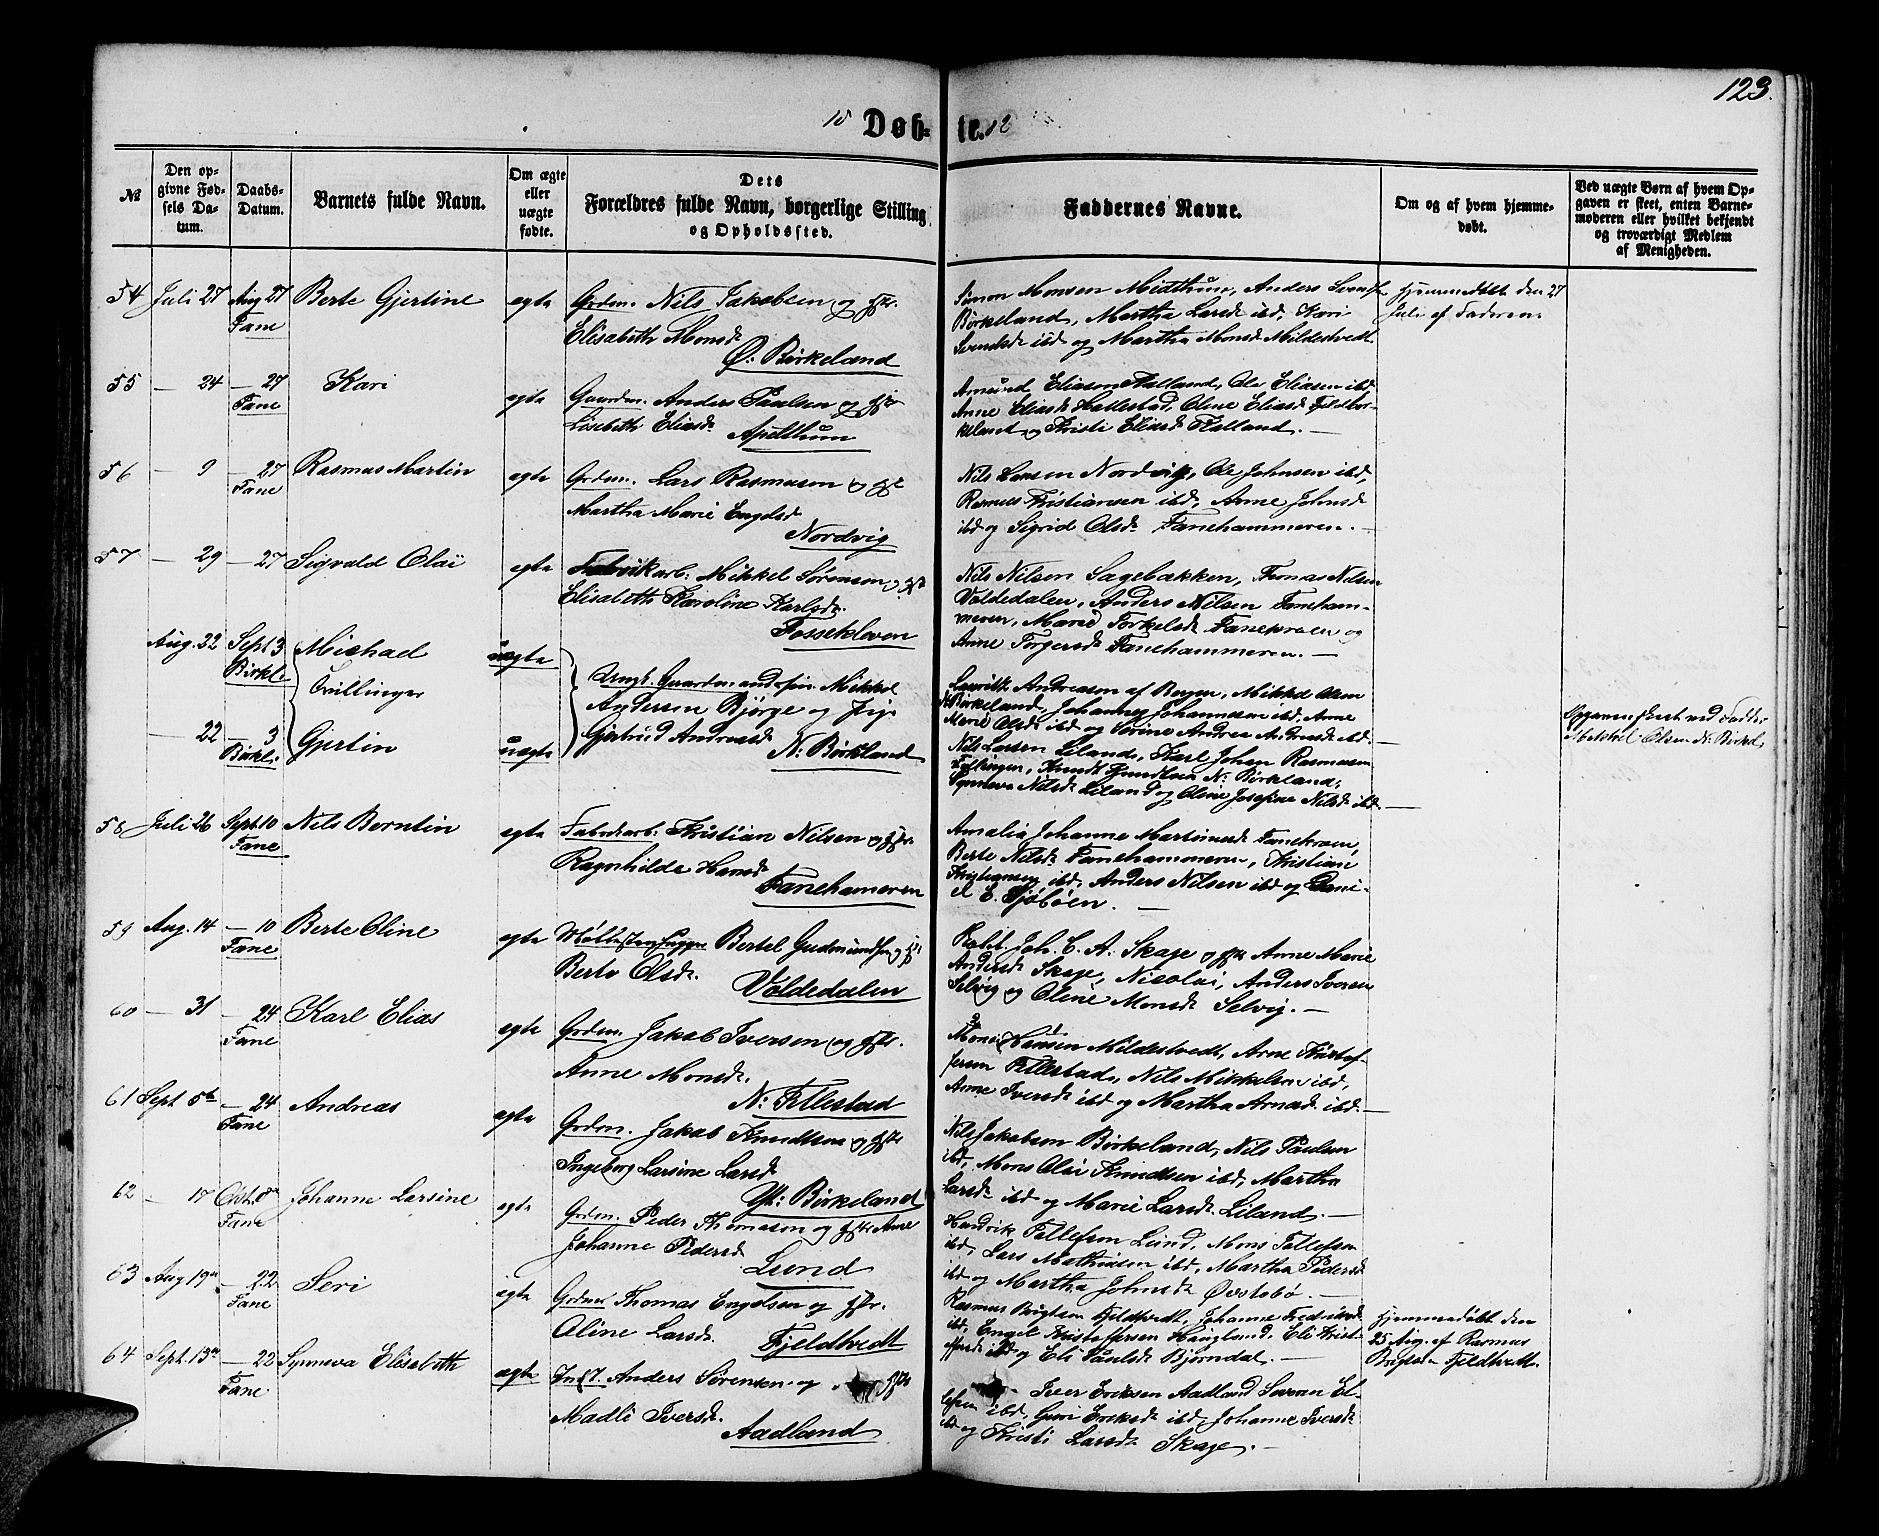 123.
18 Døb- te. 12
№
Den op-
givne Fød-
sels Da-
tum.
Daabs-
Datum.
Barnets fulde Navn.
Om ægte
eller
uægte
fødte.
Dets
Forældres fulde Navn, borgerlige Stilling
og Opholdssted.
Faddernes Navne.
Om og af hvem hjemme-
døbt.
Ved uægte Børn af hvem Op-
gaven er skeet, enten Barne-
moderen eller hvilket bekjendt
og troværdigt Medlem
af Menigheden.
54 Juli 27 Aug 27 Berte Gjertine egte Grdm. Nils Jakobsen og Hstr.
Fane
Elisabeth Monsd.
Ø. Birkeland
Simon Monsen Midthun, Anders Svends.
Birkeland, Martha Larsd. ibd, Kari
Svendsd. ibd og Martha Monsd. Mildestvedt.
Hjemmedøbt den 27
Juli af Faderen.
55 — 24 — 27 Kari egte Gaardm. Anders Paulsen og Hstr
Fane
Lisebeth Eliasd.
Apelthun
Amund Eliasen Halland, Ole Eliasen ibd
Anne Eliasd. Hattestad, Oline Eliasd. Fjeldbir-
keland og Kristi Eliasd. Halland. —
56 — 9 — 27 Rasmus Martin egte Grdm. Lars Rasmusen og
Fane
Martha Marie Engelsd
Nordvig
Nils Larsen Nordvig, Ole Johnsen ibd,
Rasmus Kristiansen ibd, Anne Johnsd
ibd og Sigrid Olsd. Fanehammeren. —
57 — 29 — 27 Sigvald Olai egte Fabrikarb. Mikkel Sørensen og
Elisabeth Karoline Karlsd.
Fossekleven
Nils Nilsen Sagebækken, Thomas Nilsen
Voldedalen, Anders Nilsen Faneham-
meren, Marie Torkelsd. Fanekroen og
Anne Torgersd. Fanehammeren. —
Aug. 22 Sept 3 Michael uægte
Birkl.
Tvillinger
— 22 — 3 Gjertin uægte
Birkl.
Ungk. Gaardm. and. Mikkel
Andersen Bjørge og Pige
Gjertrud Andreasd
N. Birkland
Lauritz Andreasen af Bergen, Mikkel Olsen
N. Birkeland, Johannes Johannesen ibd, Anne
Marie Olsd. ibd og Sørine Andrea Andreasd ibd. —
Nils Larsen Liland, Karl Johan Rasmusen
Knudt N. Birkeland,
Synneva Nilsd. Liland og Oline Josefine Nilsd. ibd. —
Opgaven skeet ved Fadder
Mikkel Olsen N. Birkel.
58 Juli 26 Sept. 10 Nils Berntin egte Fabrikarb. Kristian Nilsen og Hstr.
Fane
Ragnhilde Hansd
Fanehameren
Amalia Johanne Martinusd. Fanekroen,
Berte Nilsd. Fanehammeren, Kristiane
Kristiansen ibd, Anders Nilsen ibd og Dani-
el E. Sjøbøen. —
59 Aug. 14 — 10 Berte Oline egte Møllestenhugger Bertel Gudmundsen og
Fane
Berte Olsd.
Voldedalen
Joh. C. A. Skage og Hstr Anne Marie
Andersd. Skage, Nicolai, Anders Iversen
Selvig og Oline Monsd. Selvig. —
60 — 31 — 24 Karl Elias egte Grdm. Jakob Iversen og Hstr.
Fane
Anne Monsd.
N. Titlestad
Mons Hansen Mildestvedt, Arne Kristof-
fersen Titlestad, Nils Mikkelsen ibd,
Anne Iversd. ibd og Martha Arnesd. ibd. —
61 Sept 5te — 24 Andreas egte Grdm. Jakob Knudtsen og Hstr
Fane
Ingeborg Larsine Larsd
Yt. Birkeland
Nils Jakobsen Birkeland, Nils Paulsen
ibd, Mons Olai Knudtsen ibd, Martha
Larsd. ibd og Marie Larsd. Liland. —
62 — 17 Okt. 8de Johanne Larsine egte Grdm. Peder Thomasen og Hstr Anne
Fane
Johanne Pedersd
Lund
Hendrik Tollefsen Lund, Mons Tollefsen
ibd, Lars Mathisen ibd, Martha Pedersd
ibd og Martha Johnsd. Øvstebø. —
63 Aug 19de — 22 Seri egte Grdm. Thomas Engelsen og Hstr.
Fane
Oline Larsd.
Fjeldtvedt
Rasmus Brigtsen Fjeldtvedt, Johanne Fredriksd
ibd, Engel Kristoffersen Haugland, Eli Krist-
offersd. ibd og Eli Paulsd. Bjørndal. —
Hjemmedøbt den
25 Aug. af Rasmus
Brigtsen Fjeldtvedt.
64 Sept. 13de — 22 Synneva Elisabeth egte Inds. Anders Sørensen og Hstr
Fane
Madli Iversd.
Aadland
Iver Eriksen Aadland Severin El-
lefsen ibd, Guri Eriksd. ibd, Johanne Iversd.
ibd og Kristi Larsd. Skage. —